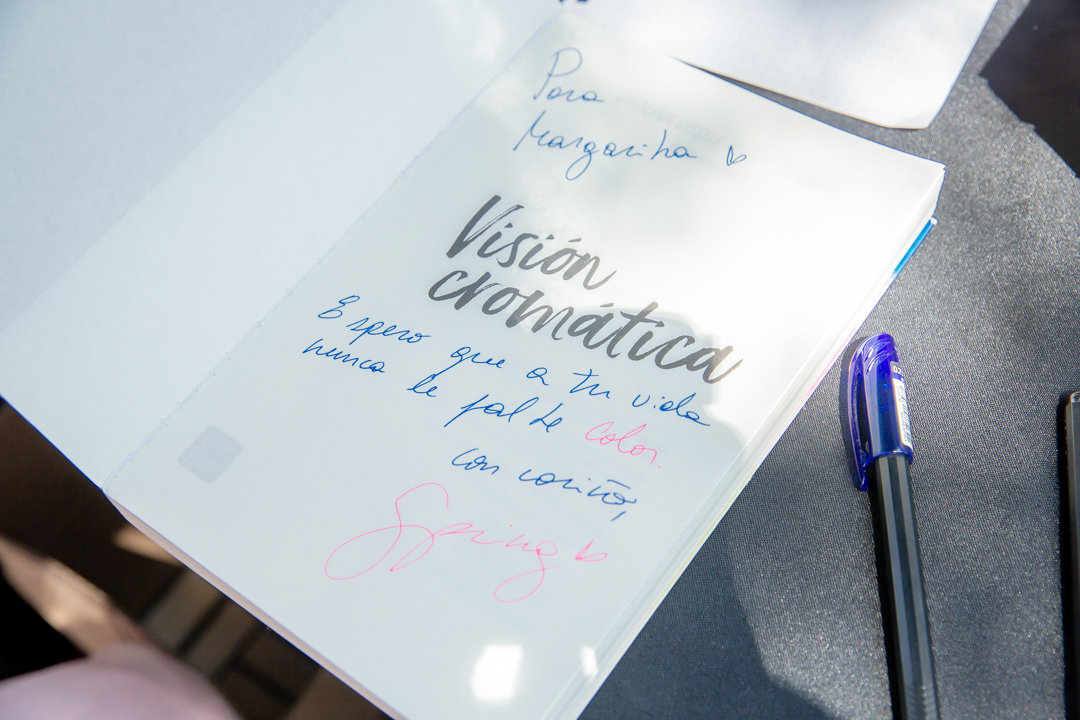 Para
Margarita
Visión
cromática
Espero que a tu vida
nunca le falte color.
con cariño,
Spring